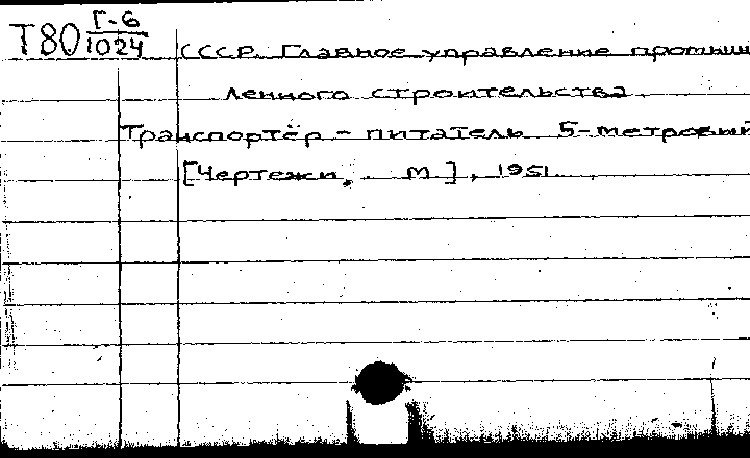 Т80 Г-6
1024
СССР. Главное управление промыш
ленного строительства.
Транспортёр - питатель. 5-метровый
[Чертежи, М.], 1951.